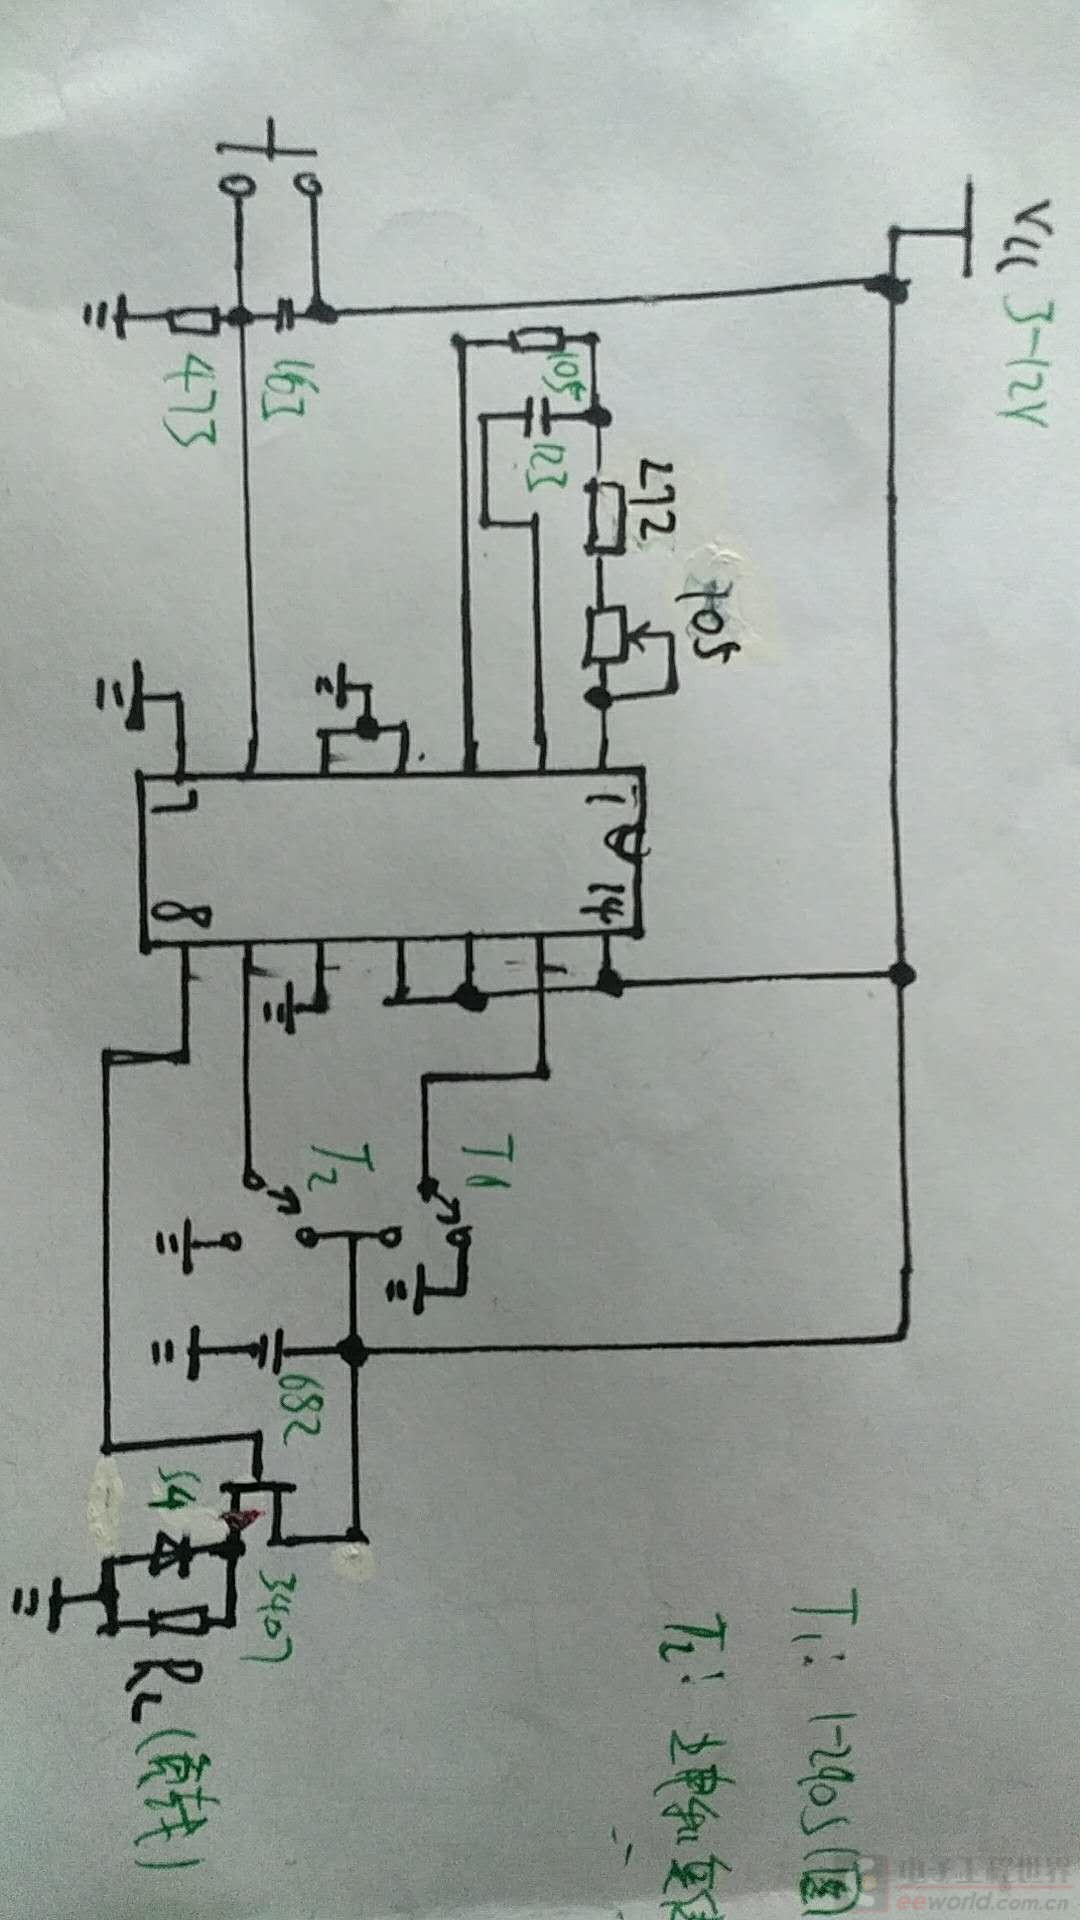 Vcc 3-12V
163
473
105
123
472
105
1
7
14
8
T1
T2
682
S4
3407
RL (负载)
T1: 1-290S (图
T2: 上
电子工程世界
eeworld.com.cn